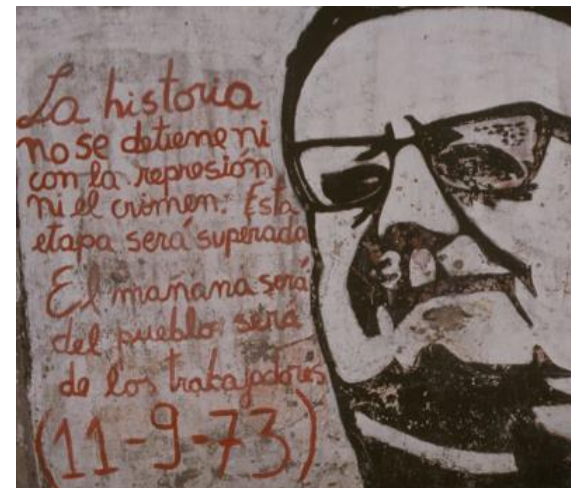 La historia
no se detiene ni
con la represión
ni el crimen. Esta
etapa será superada
El mañana será
del pueblo será
de los trabajadores
(11-9-73)